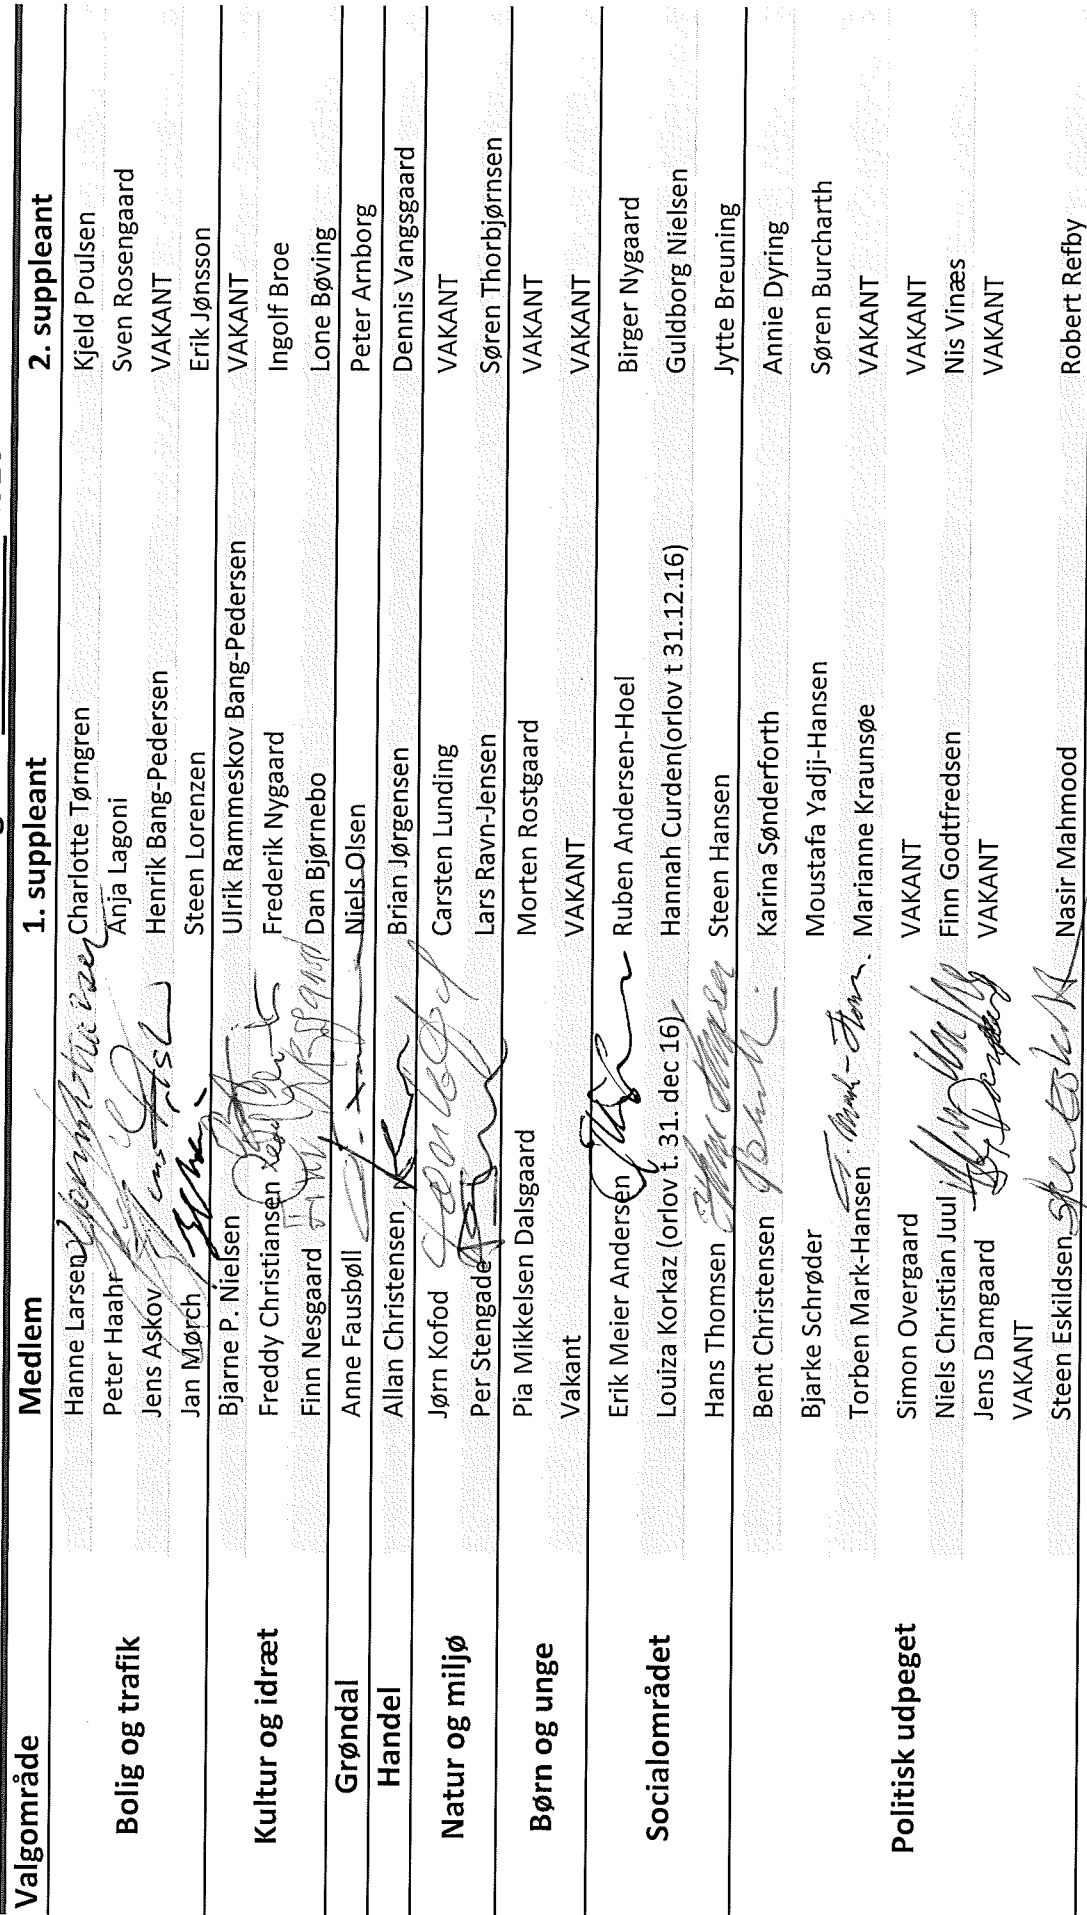 Valgområde Medlem 1. suppleant 2. suppleant
Bolig og trafik
Hanne Larsen Charlotte Tørngren Kjeld Poulsen
Peter Haahr Anja Lagoni Sven Rosengaard
Jens Askov Henrik Bang-Pedersen VAKANT
Jan Mørch Steen Lorenzen Erik Jønsson
Kultur og idræt
Bjarne P. Nielsen Ulrik Rammeskov Bang-Pedersen VAKANT
Freddy Christiansen Frederik Nygaard Ingolf Broe
Finn Nesgaard Dan Bjørnebo Lone Bøving
Grøndal Anne Fausbøll Niels Olsen Peter Arnborg
Handel Allan Christensen Brian Jørgensen Dennis Vangsgaard
Natur og miljø
Jørn Kofod Carsten Lunding VAKANT
Per Stengade Lars Ravn-Jensen Søren Thorbjørnsen
Børn og unge
Pia Mikkelsen Dalsgaard Morten Rostgaard VAKANT
Vakant VAKANT VAKANT
Socialområdet
Erik Meier Andersen Ruben Andersen-Hoel Birger Nygaard
Louiza Korkaz (orlov t. 31. dec 16) Hannah Curden(orlov t 31.12.16) Guldborg Nielsen
Hans Thomsen Steen Hansen Jytte Breuning
Politisk udpeget
Bent Christensen Karina Sønderforth Annie Dyring
Bjarke Schrøder Moustafa Yadji-Hansen Søren Burcharth
Torben Mark-Hansen T. Mark-Hansen Marianne Kraunsøe VAKANT
Simon Overgaard VAKANT VAKANT
Niels Christian Juul Finn Godtfredsen Nis Vinæs
Jens Damgaard VAKANT VAKANT
VAKANT
Steen Eskildsen Nasir Mahmood Robert Refby